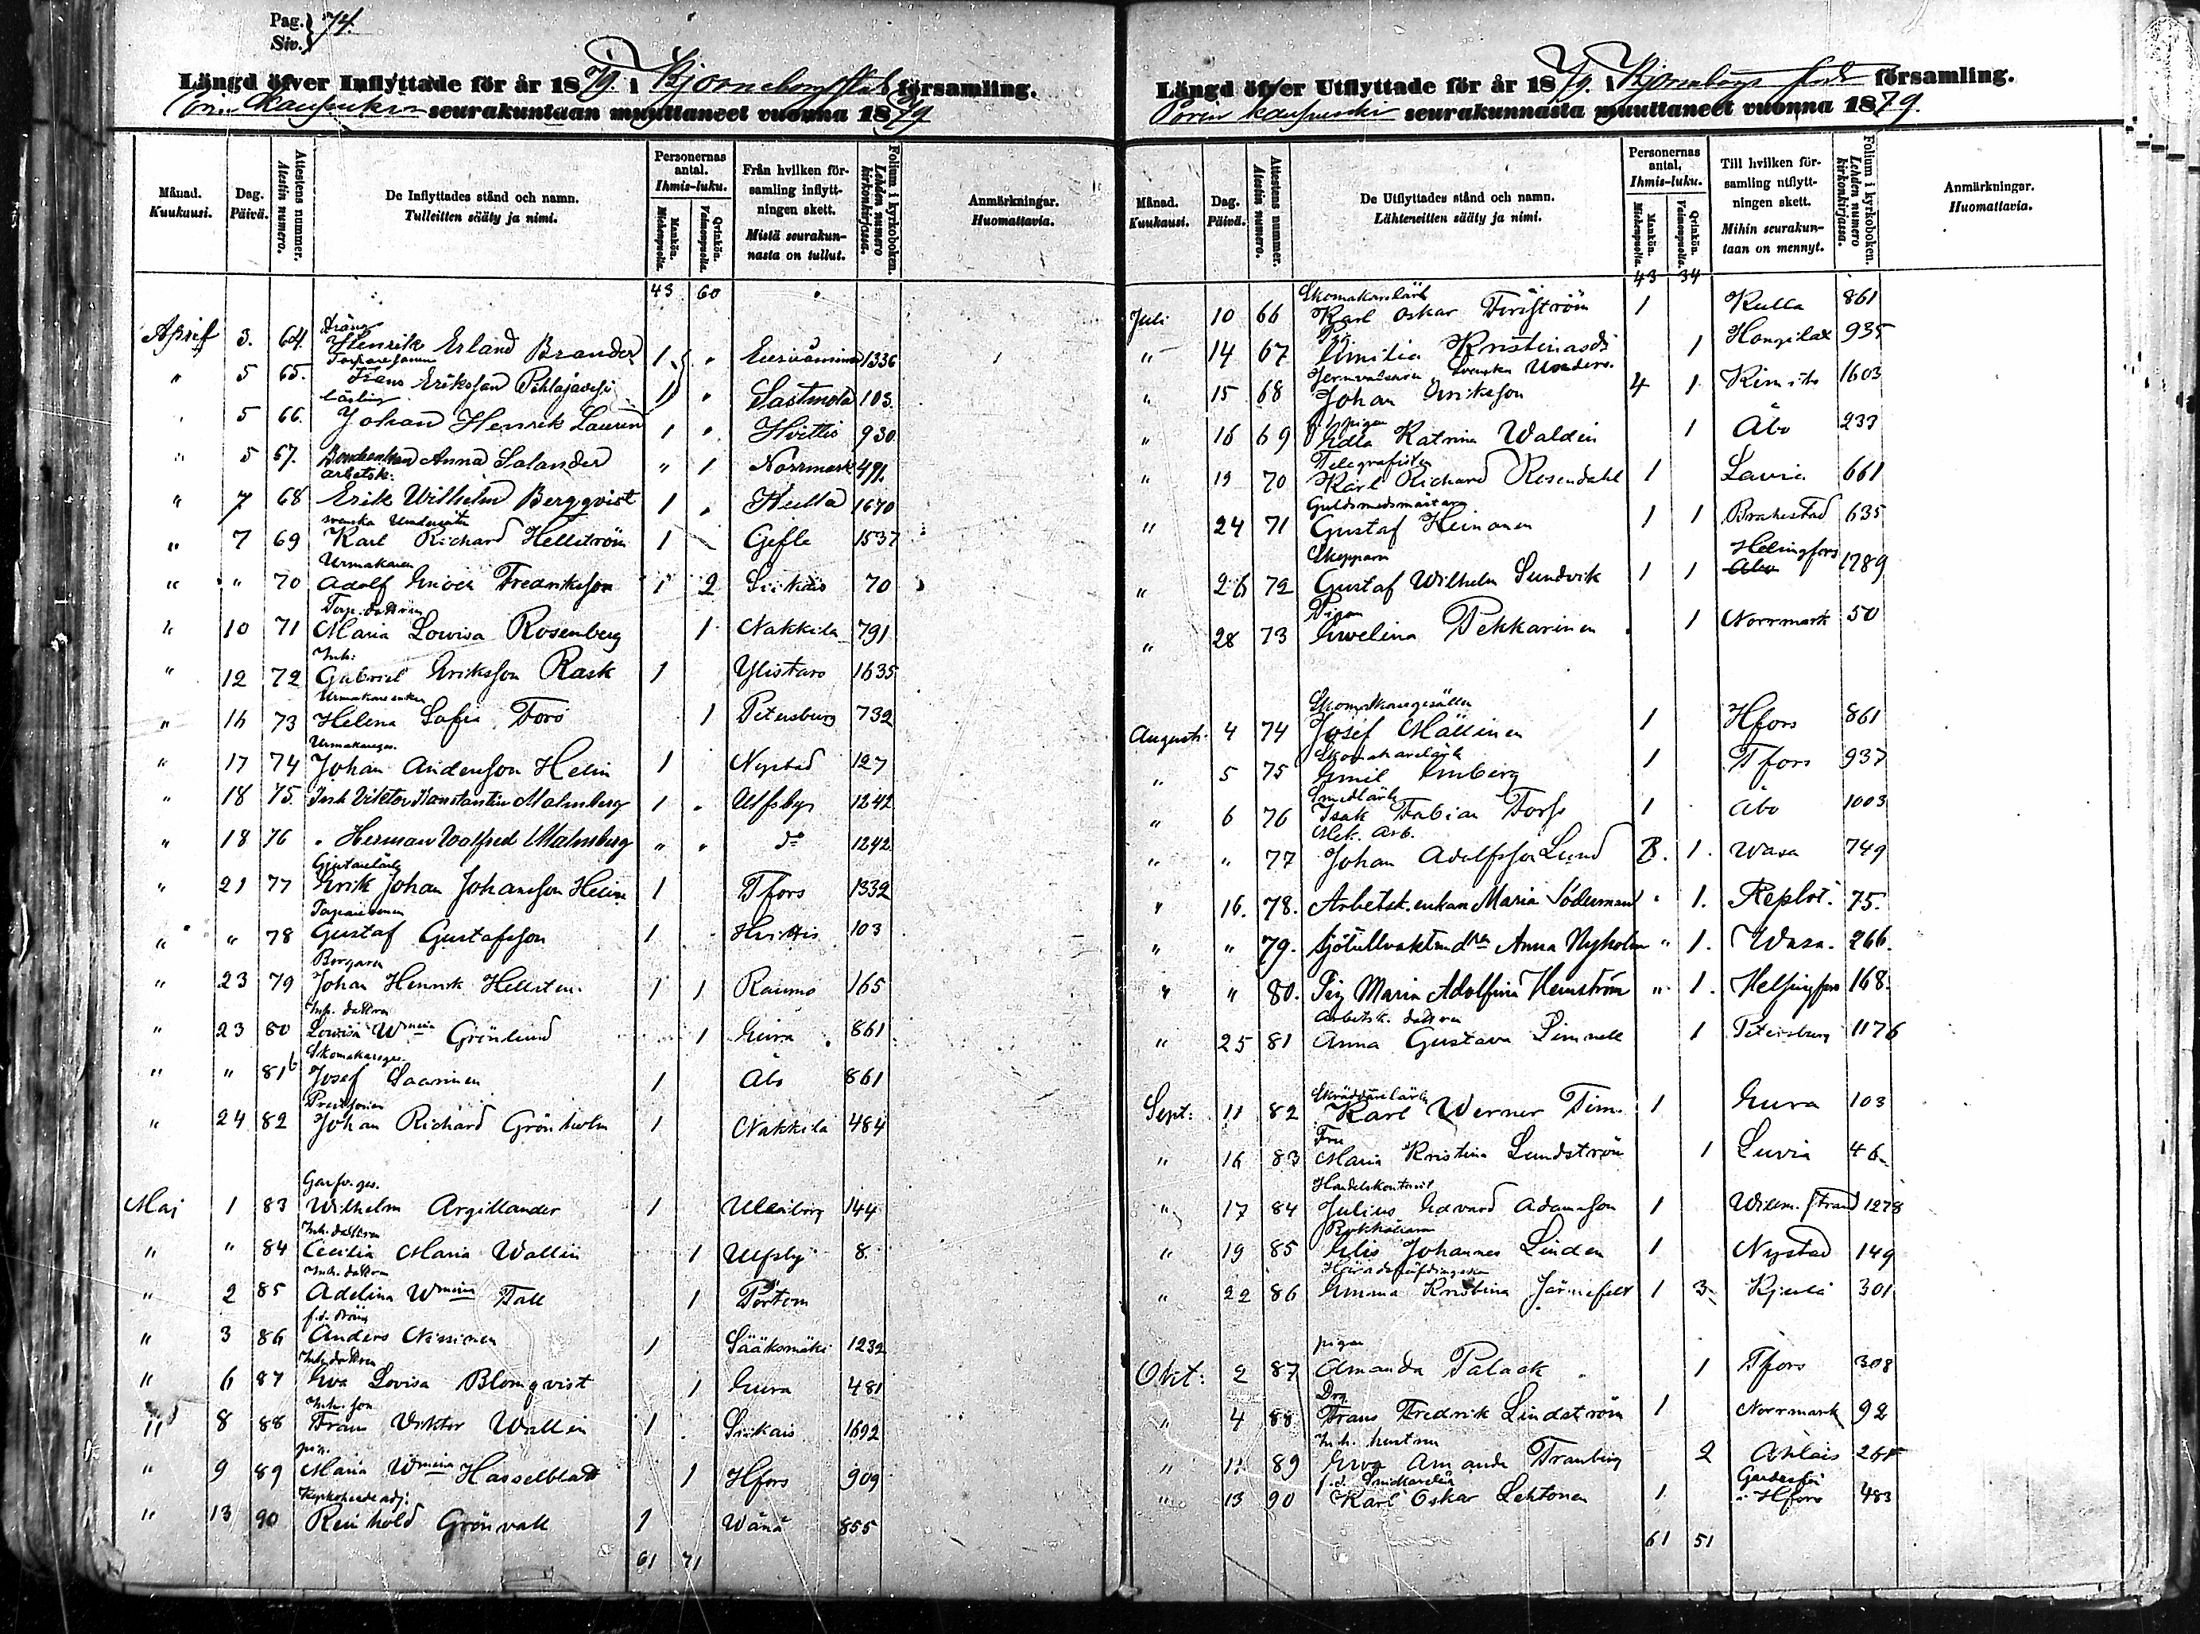 Pag. Siv. } 74.
Längd öfver Inflyttade för år 1879. i Björneborgs stads församling.
Porin kaupunkin seurakuntaan muuttaneet vuonna 1879
Månad. Kuukausi.
Dag. Päivä.
Attestens nummer. Atestin numero.
De Inflyttades stånd och namn. Tulleitten sääty ja nimi.
Personernas antal. Ihmis-luku.
Mankön. Miehenpuolia.
Qvinkön. Vaimonpuolia.
Från hvilken församling inflyttningen skett. Mistä seurakunnasta on tullut.
Folium i kyrkoboken. Lehden numero kirkonkirjassa.
Anmärkningar. Huomattavia.
43 60
April 3. 64. Dräng Henrik Erland Brander 1 " 1336
" 5 65. Torparesonen Frans Eriksson Pihlajavesi 1 " Sastmola 103.
" 5 66. Johan Henrik Lauren 1 " Hvittis 930
" 5 67. Anna Salander " 1 Norrmark 491.
" 7 68 Arbetsk. Erik Wilhelm Bergqvist 1 " Kulla 1670
" 7 69 svenska Undersåten Karl Richard Hellström 1 Gefle 1537
" " 70 Urmakaren Adolf Enoch Fredriksson 1 2 Siikais 70
" 10 71 Torp. dottren Maria Lowisa Rosenberg 1 Nakkila 791
" 12 72 Inh: Gabriel Eriksson Rask 1 Ylistaro 1635
" 16 73 Urmakareenkan Helena Sofia Fors 1 Petersburg 732
" 17 74 Urmakareges. Johan Andersson Helin 1 Nystad 127
" 18 75. Inh Viktor Konstantin Malmberg 1 " Ulfsby 1242
" 18 76 " Herman Wolfred Malmberg " " do 1242
" 21 77 Gjutarelärl. Erik Johan Johansson Helin 1 Tfors 1332
" " 78 Torparesonen Gustaf Gustafsson 1 Hvittis 103
" 23 79 Borgaren Johan Henrik Hellsten 1 1 Raumo 165
" 23 80 Inh. dottren Lowisa Wmina Grönlund 1 Eura 861
" " 81b Skomakareges. Josef Saarinen 1 Åbo 861
" 24 82 Johan Richard Grönholm 1 Nakkila 484
Maj 1 83 Garfv. ges. Wilhelm Argillander 1 Uleåborg 144
" " 84 Inh. dottren Cecilia Maria Wallin 1 Ulfsby 8
" 2 85 Inh. dottren Adelina Wmina Tall 1 Pörtom
" 3 86 f.d. dräng Anders Nissinen 1 Sääksmäki 1232
" 6 87 Inh. dottren Eva Lovisa Blomqvist 1 Eura 481
" 8 88 Inh. son Frans Viktor Wallin 1 Siikais 1692
" 9 89 pig. Maria Wmina Hasselblatt 1 Hfors 909
" 13 90 Kyrkoherde adj: Reinhold Grönvall 1 Wånå 855
61 71
Längd öfver Utflyttade för år 1879. i Björneborgs stads församling.
Porin kaupunki seurakunnasta muuttaneet vuonna 1879.
Månad. Kuukausi.
Dag. Päivä.
Attestens nummer. Atestin numero.
De Utflyttades stånd och namn. Lähteneitten sääty ja nimi.
Personernas antal. Ihmis-luku.
Mankön. Miehenpuolia.
Qvinkön. Vaimonpuolia.
Till hvilken församling utflyttningen skett. Mihin seurakuntaan on mennyt.
Folium i kyrkoboken. Lehden numero kirkonkirjassa.
Anmärkningar. Huomattavia.
43 34
Juli 10 66 Skomakarelärl. Karl Oskar 1 Kulla 861
" 14 67 Pig. Emilia Kristinasdr 1 Hongilax 935
" 15 68 Jernvalsaren, Svenska Unders. Johan Eriksson 4 1 Kimito 1603
" 16 69 pigan Edla Katrina Waldén 1 Åbo 233
" 19 70 Telegrafisten Karl Richard Rosendahl 1 Lavia 661
" 24 71 Guldsmedsmästaren Gustaf Heinonen 1 1 Brahestad 635
" 26 72 Skepparen Gustaf Wilhelm Sundvik 1 1 Helsingfors Åbo 1289
" 28 73 Pigan Ewelina Pekkarinen 1 Norrmark 50
Augusti 4 74 Skomakaregesällen Josef Mällinen 1 Hfors 861
" 5 75 Skomakarelärl. Emil Enberg 1 Tfors 937
" 6 76 Smedlärl. Isak Fabian Forss 1 Åbo 1003
" " 77 Mek. Arb. Johan Adolfsson Lund 3. 1. Wasa 749
" 16. 78. Arbetsk. enkan Maria Söderman " 1. Replot. 75.
" " 79. Sjötullvaktm dtrn Anna Nyholm " 1. Wasa. 266.
" " 80. Pig Maria Adolfina Hemström " 1. Helsingfors 168.
" 25 81 Arbetsk. dottren Anna Gustava Limnell 1 Petersburg 1176
Sept: 11 82 Skräddarelärl. Karl Werner Tim. 1 Eura 103
" 16 83 Fru Maria Kristina Lundström 1 Luvia 46
" 17 84 Handelskontorist Julius Edvard Adamsson 1 Willm. strand 1278
" 19 85 Bokhållaren Elis Johannes Linden 1 Nystad 149
" 22 86 Häradshöfdingskan Emma Kristina Järnefelt 1 3 Kjulo 301
Okt: 2 87 pigan Amanda Palack 1 Tfors 308
" 4 88 Drg Frans Fredrik Lindström 1 Norrmark 92
" 11 89 Inh. hustrun Ewa Amanda Tranberg 2 Ahlais 265
" 13 90 Karl Oskar Lehtonen 1 i Hfors 483
61 51